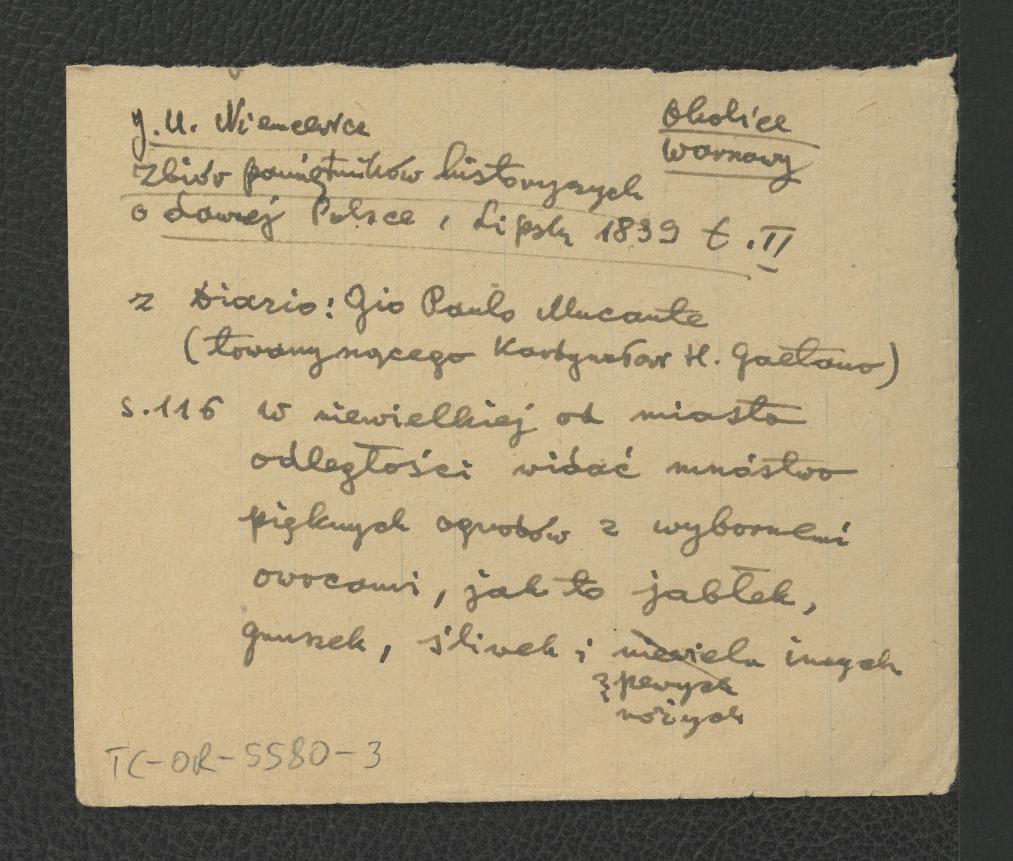 J. U. Niemcewicz
Okolice
Warszawy
Zbiór pamiętników historycznych
o dawnej Polsce, Lipsk 1839 t. II
z Diario: Gio Paulo Mucante
(towarzyszącego Kardynałowi H. Gaetano)
s. 116 w niewielkiej od miasta
odległości widać mnóstwo
pięknych ogrodów z wybornemi
owocami, jak to jabłek,
gruszek, śliwek i niewielu innych
TC-OR-5580-3